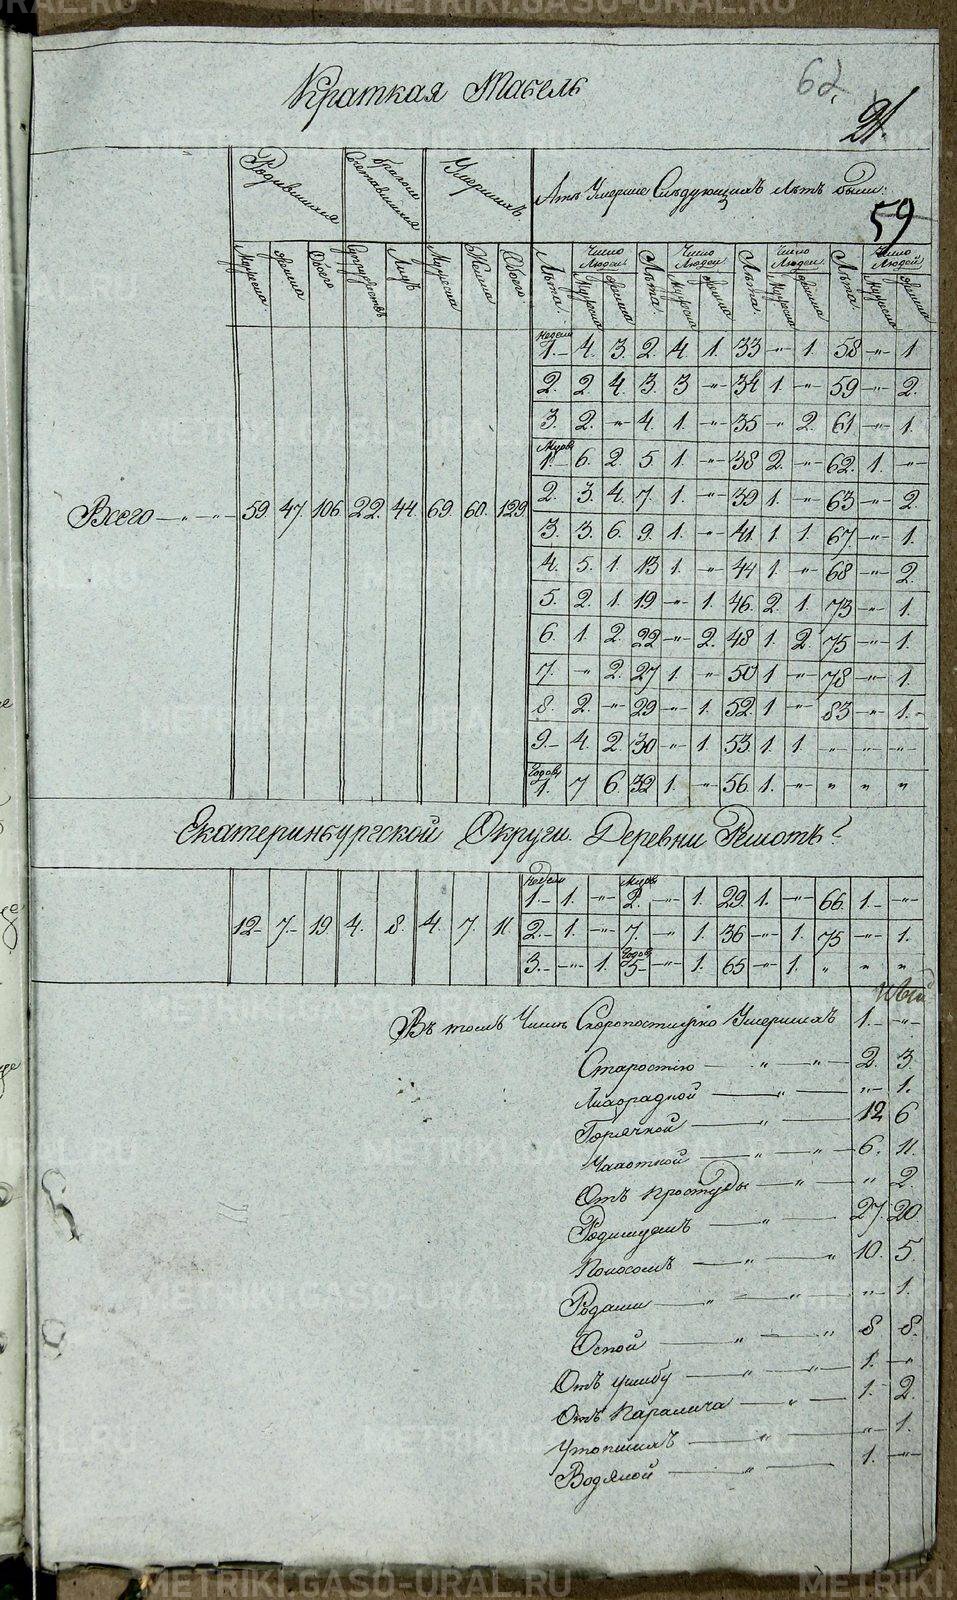 METRIKI.GASO-URAL.RU
62
Краткая Табель
21.
Родившихся
Бракомъ Сочетавшихся
Умершихъ
Лѣтъ Умершие Слѣдующихъ Лѣтъ были:
59
Мужеска Женска Обоего Супружествъ Лицъ Мужеска Женска Обоего Лѣта. Число Людей Мужеска Женска Лѣта. Число Людей Мужеска Женска Лѣта. Число Людей Мужеска Женска Лѣта. Число Людей Мужеска Женска
Недели
1. 4. 3. 2. 4. 1. 33 -"- 1. 58 -"- 1
2. 2 4. 3. 3 -"- 34 1. -"- 59 -"- 2.
3. 2. -"- 4. 1. -"- 35 -"- 2. 61 -"- 1.
1. 6. 2. 5. 1. -"- 38 2. -"- 62. 1. -"-
2. 3. 4. 7. 1. -"- 39 1. -"- 63 -"- 2.
Всего 59. 47. 106. 22. 44. 69. 60. 129
3. 3. 6. 9. 1. -"- 41. 1. 1. 67. -"- 1.
4. 5. 1. 13 1. -"- 44 1. -"- 68 -"- 2.
5. 2. 1. 19 -"- 1. 46. 2. 1. 73 -"- 1.
6. 1. 2. 22 -"- 2. 48 1. 2. 75 -"- 1.
7. -"- 2. 27 1. -"- 50 1 -"- 78 -"- 1.
8. 2. -"- 29 -"- 1. 52. 1 -"- 83 -"- 1.
9. 4. 2. 30 -"- 1. 53. 1. 1. " " "
Годовъ
1. 7 6. 32 1. -"- 56 1. -"- " " "
Екатеринбургской Округи. Деревни
12 7 19. 4. 8. 4. 7. 11
Недели
1. 1. -"- 2. -"- 1. 29. 1. -"- 66. 1. -"-
2. 1. -"- 7. -"- 1. 36 -"- 1. 75 -"- 1.
Годовъ
3. -"- 1. 5 -"- 1. 65 -"- 1. " " "
Въ томъ Числѣ Скоропостижно Умершихъ 1. -"-
Старостію 2. 3.
-"- 1.
Горячкой 12 6
Чахоткой 6. 11.
Отъ простуды " 2.
Родимцемъ 27. 20
Поносомъ 10. 5.
Родами -"- 1.
Оспой 8 8.
Отъ ушибу 1. -"-
Отъ Паралича 1. 2.
Утопшихъ -"- 1.
Водяной 1. -"-